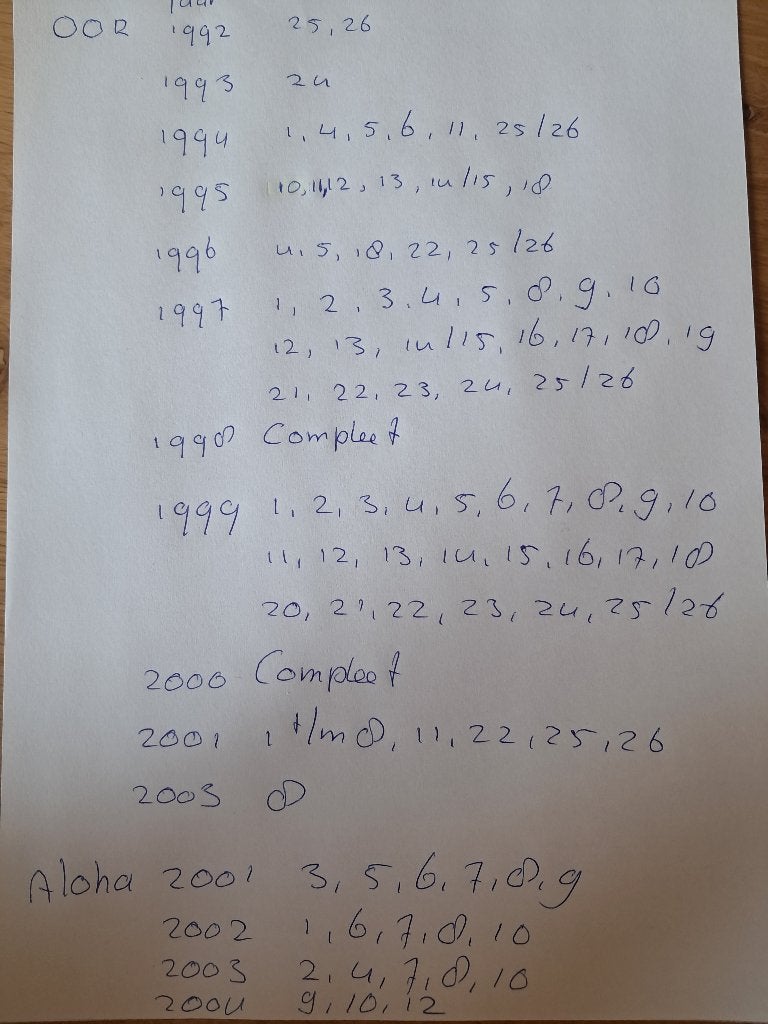 jaar
OOR 1992 25, 26
1993 24
1994 1, 4, 5, 6, 11, 25/26
1995 10, 11, 12, 13, 14/15, 18
1996 4, 5, 18, 22, 25/26
1997 1, 2, 3, 4, 5, 8, 9, 10
12, 13, 14/15, 16, 17, 18, 19
21, 22, 23, 24, 25/26
1998 Compleet
1999 1, 2, 3, 4, 5, 6, 7, 8, 9, 10
11, 12, 13, 14, 15, 16, 17, 18
20, 21, 22, 23, 24, 25/26
2000 Compleet
2001 1 t/m 8, 11, 22, 25, 26
2003 8
Aloha 2001 3, 5, 6, 7, 8, 9
2002 1, 6, 7, 8, 10
2003 2, 4, 7, 8, 10
2004 9, 10, 12